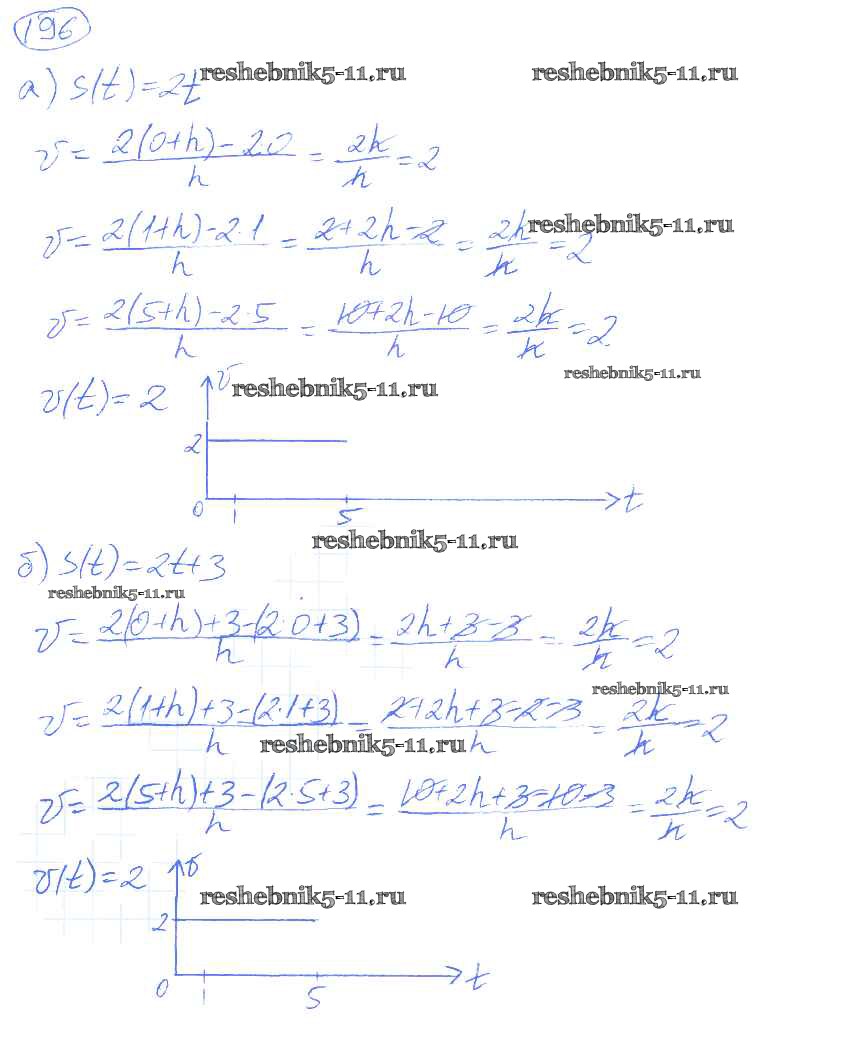 196
а) s(t)=2t reshebnik5-11.ru reshebnik5-11.ru
v = (2(0+h) - 2.0)/h = 2h/h = 2
v = (2(1+h) - 2·1)/h = (2+2h-2)/h = 2h/h = 2 reshebnik5-11.ru
v = (2(5+h) - 2·5)/h = (10+2h-10)/h = 2h/h = 2
reshebnik5-11.ru
v(t) = 2 v reshebnik5-11.ru
2
0 1 5 t
reshebnik5-11.ru
б) s(t)=2t+3
reshebnik5-11.ru
v = (2(0+h)+3-(2·0+3))/h = (2h+3-3)/h = 2h/h = 2
reshebnik5-11.ru
v = (2(1+h)+3-(2·1+3))/h = (2+2h+3-2-3)/h = 2h/h = 2
reshebnik5-11.ru
v = (2(5+h)+3-(2·5+3))/h = (10+2h+3-10-3)/h = 2h/h = 2
v(t) = 2 v reshebnik5-11.ru reshebnik5-11.ru
2
0 1 5 t